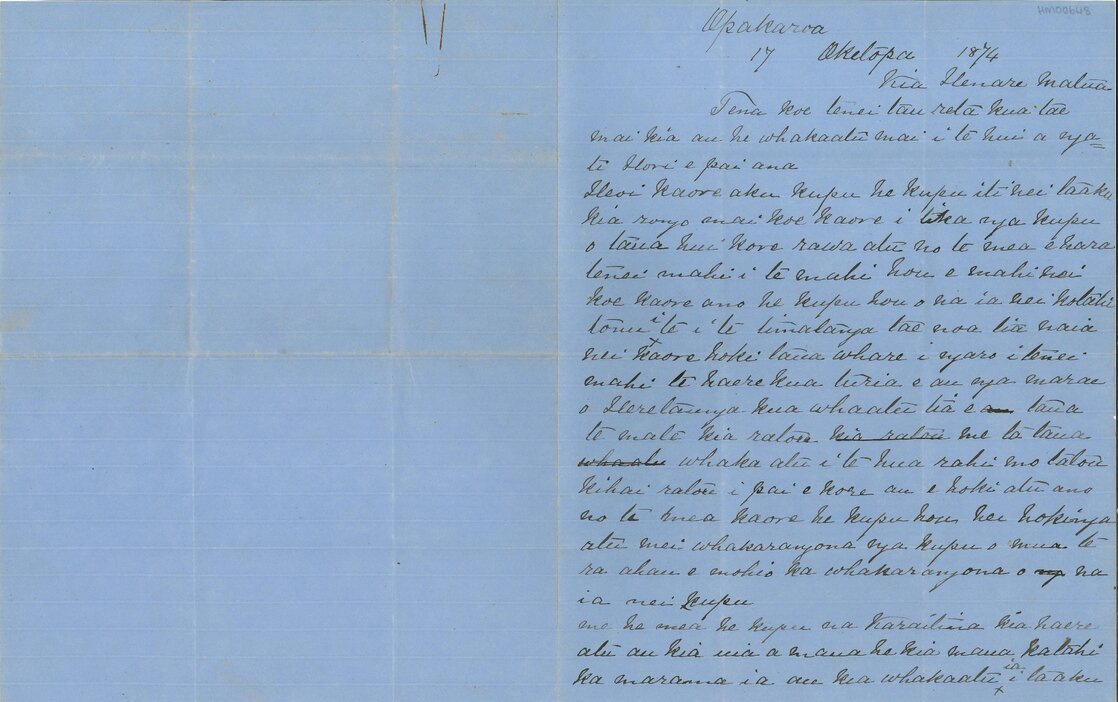 HM00648
Opakaroa
17 Oketopa 1874
Kia Henare Matua
Tena koe tenei tau reta kua tae
mai kia au he whakaatu mai i te hui a nga=
te Hori e pai ana
Heoi kaore aku kupu he kupu iti nei taaku
kia rongo mai koe kaore i tika nga kupu
o taua hui kore rawa atu no te mea ehara
tenei mahi i te mahi hou e mahi nei
koe kaore ano he kupu hou o na ia nei kotahi
tonu i te i te timatanga tae noa tia naia
nei kaore hoki taua whare i ngaro i tenei
mahi te haere kua turia e au nga marae
o Heretaunga kua whaatu tia e au taua
te mate kia ratou kia ratou me ta taua
whaatu whaka atu i te hua rahi mo tatou
kihai ratou i pai e kore au e hoki atu ano
no te mea kaore he kupu hou hei hokinga
atu mei whakarangona nga kupu o mua te
ra ahau e mohio ka whakarangona o ng na
ia nei kupu
me he mea he kupu na Karaitina kia haere
atu au kia nia a mana he kia mana katahi
ka marama ia au kia whakaatu ia i taaku